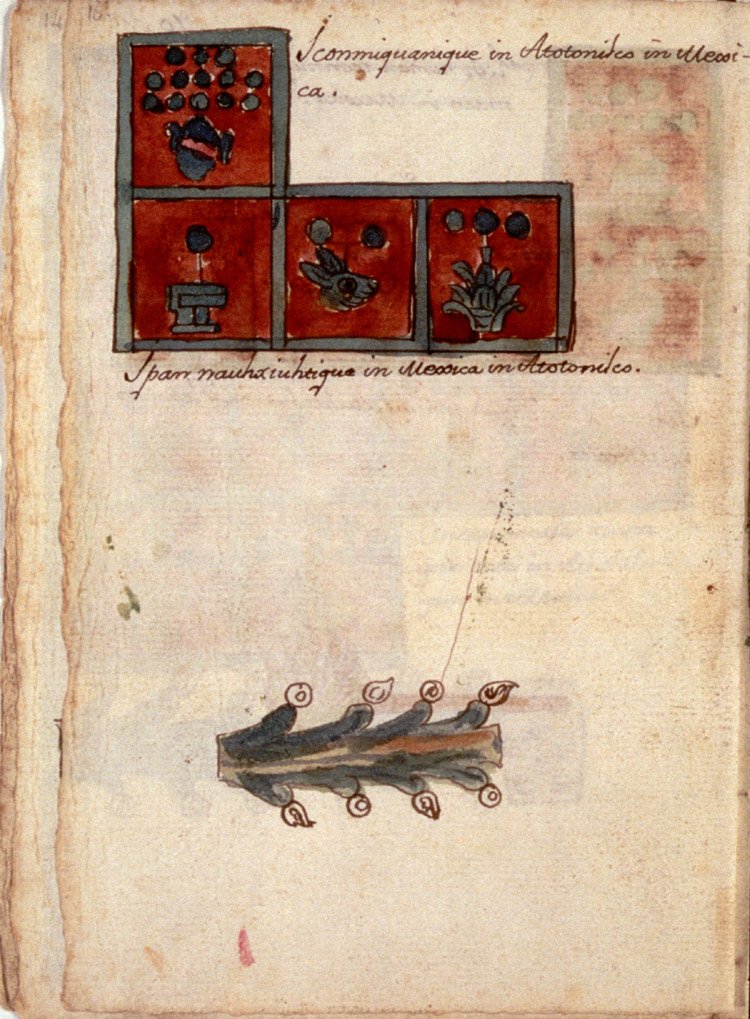 Iconmiquanique in Atotonilco in Mexxi-
ca.
Ipan nauhxiuhtique in Mexxica in Atotonilco.